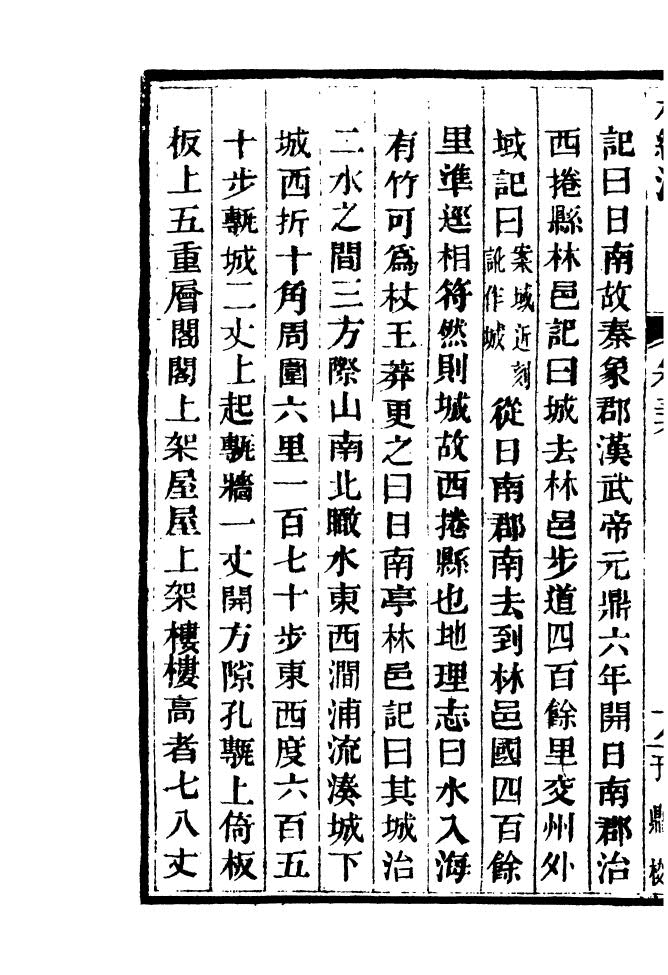 記曰日南故秦象郡漢武帝元鼎六年開日南郡治
西捲縣林邑記曰城去林邑步道四百餘里交州外
域記曰案域近刻訛作城從日南郡南去到林邑國四百餘
里準逕相符然則城故西捲縣也地理志曰水入海
有竹可爲杖王莽更之曰日南亭林邑記曰其城治
二水之間三方際山南北瞰水東西澗浦流湊城下
城西折十角周圍六里一百七十步東西度六百五
十步甎城二丈上起甎牆一丈開方隙孔甎上倚板
板上五重層閣閣上架屋屋上架樓樓高者七八丈